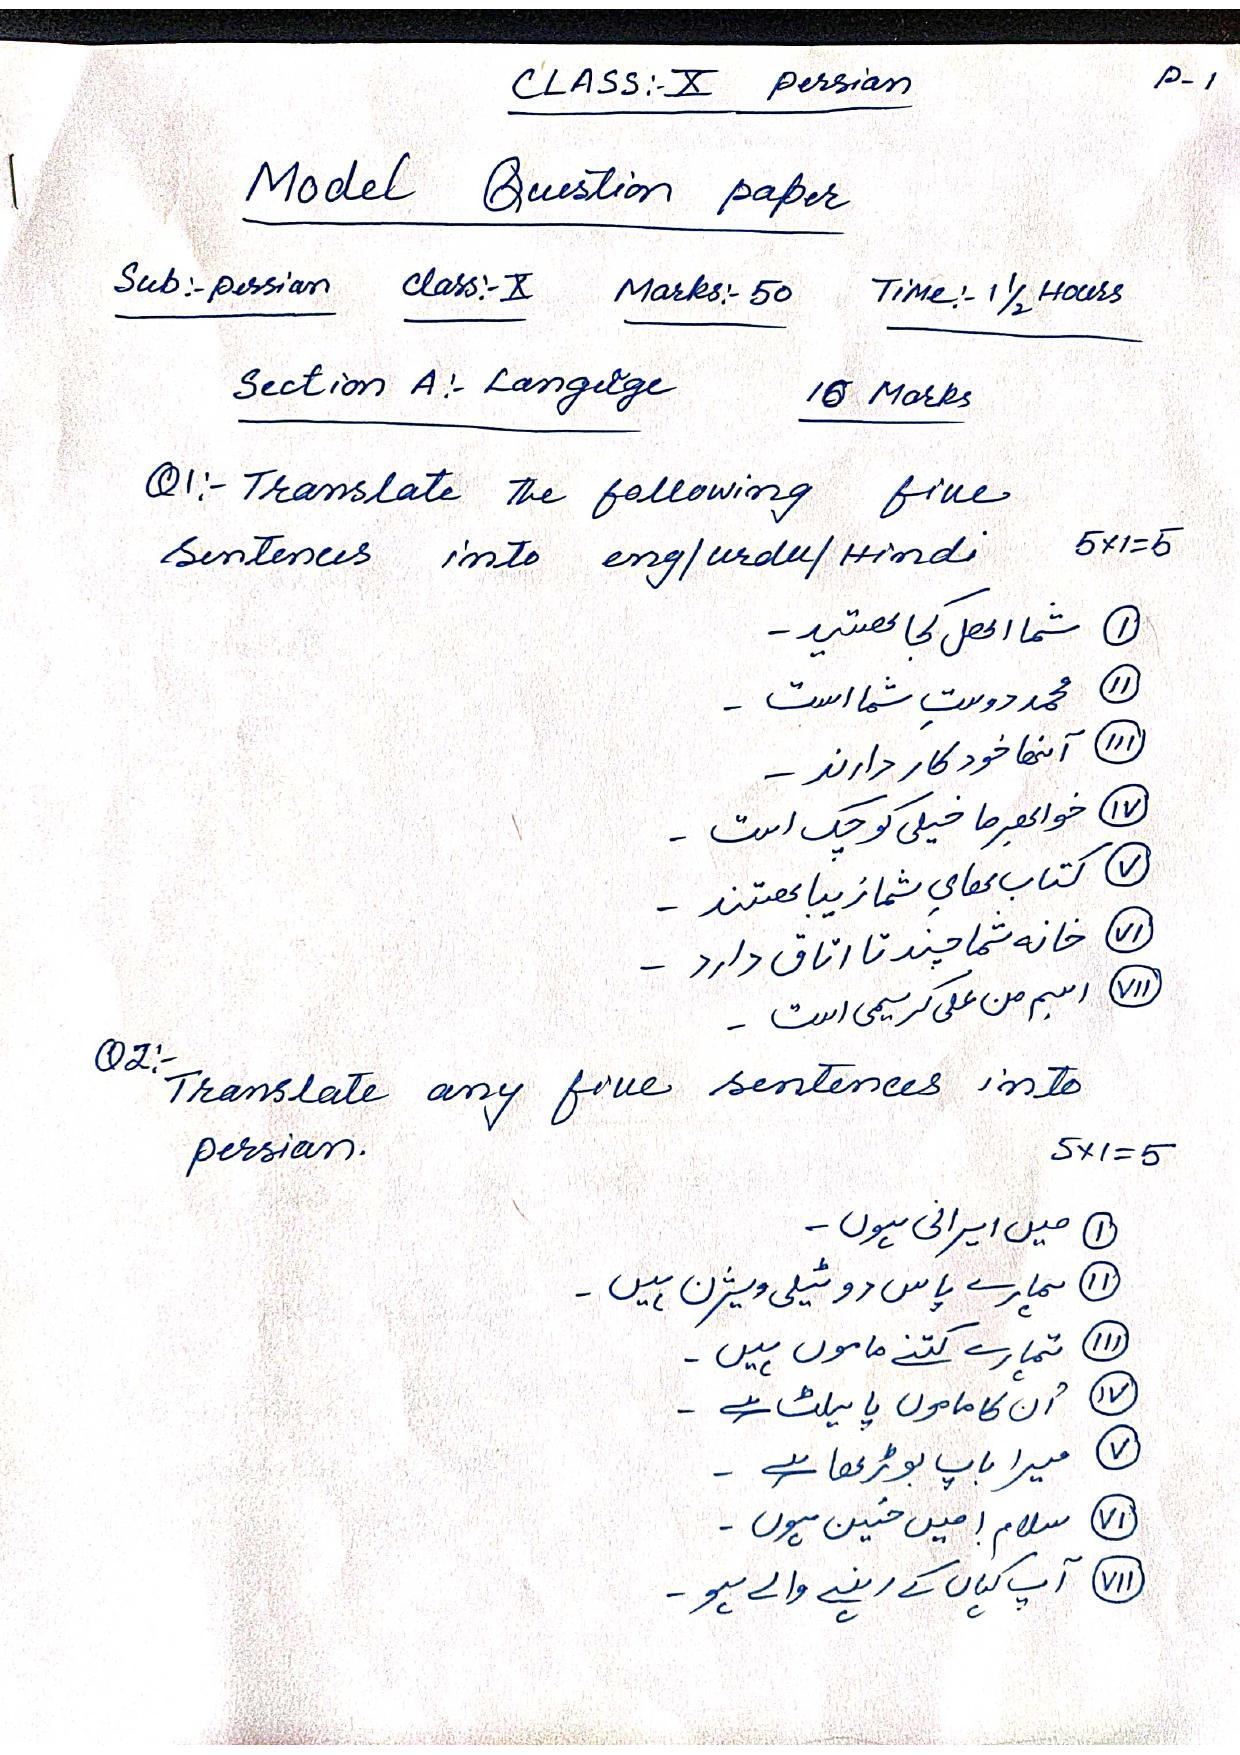 CLASS:- X Persian P-1
Model Question paper
Sub:- persian class:- X Marks:- 50 Time:- 1½ Hours
Section A:- Languge 16 Marks
Q1:- Translate the following five
sentences into eng/urdu/Hindi 5x1=5
(I) شما اهل کجا هستید -
(II) محمد دوستِ شما است -
(III) آنها خودکار دارند -
(IV) خواهرِ ما خیلی کوچک است -
(V) کتاب ہایِ شما زیبا هستند -
(VI) خانه شما چند تا اتاق دارد -
(VII) اسم من علی کریمی است -
Q2:-
Translate any five sentences into
persian. 5x1=5
(I) میں ایرانی ہوں -
(II) ہمارے پاس دو ٹیلی ویژن ہیں -
(III) تمہارے کتنے ماموں ہیں -
(IV) اُن کا ماموں پایلٹ ہے -
(V) میرا باپ بوڑھا ہے -
(VI) سلام! میں حُنین ہوں -
(VII) آپ کہاں کے رہنے والے ہو -